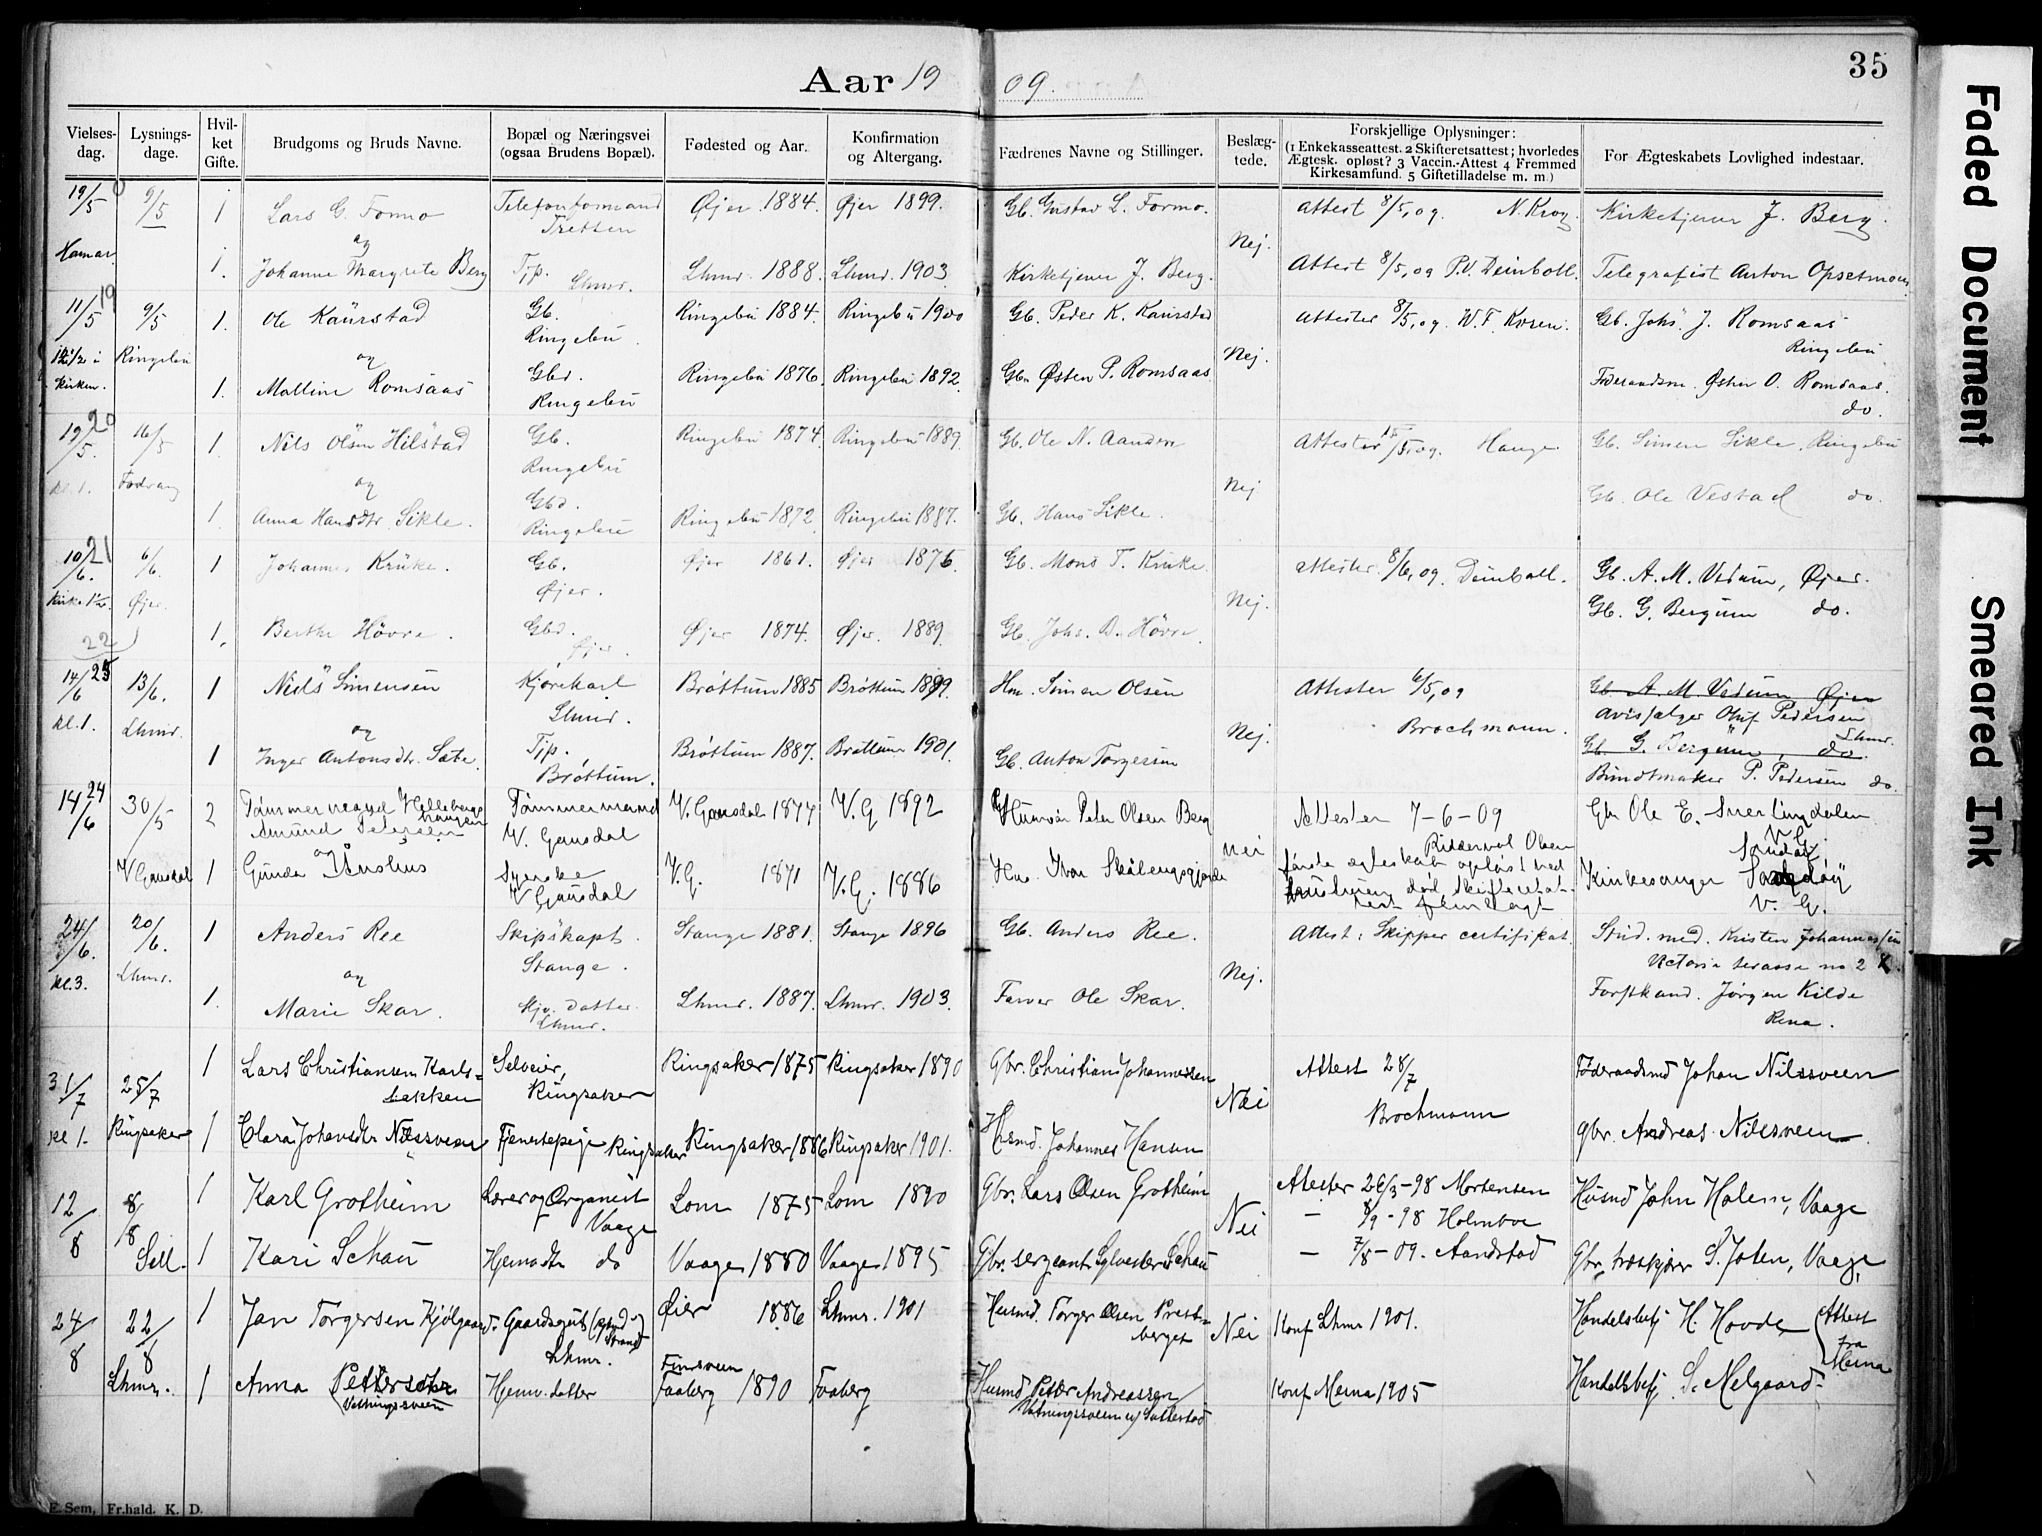 35
Aar 19 09.
Vielses-dag.
Lysnings-dage.
Hvil-ket Gifte.
Brudgoms og Bruds Navne.
Bopæl og Næringsvei (ogsaa Brudens Bopæl).
Fødested og Aar.
Konfirmation og Altergang.
Fædrenes Navne og Stillinger.
Beslæg-tede.
Forskjellige Oplysninger: (1 Enkekasseattest. 2 Skifteretsattest; hvorledes Ægtesk. opløst? 3 Vaccin.-Attest 4 Fremmed Kirkesamfund. 5 Giftetilladelse m. m.)
For Ægteskabets Lovlighed indestaar.
19/5 9/5 1 Lars G. Formo Telefonformand Øjer 1884. Øjer 1899. Gb. Gustav L. Formo. Attest 8/5,09. N. Krog Kirketjener J. Berg.
og Tretten
Hamar. 1. Johanne Margrete Berg Tjp. Lhmr. Lhmr. 1888. Lhmr. 1903. Kirketjener J. Berg. Nej. Attest 8/5,09 P.V. Deinboll. Telegrafist Anton Opsetmoen
19
11/5 9/5 1. Ole Kaurstad Gb. Ringebu 1884. Ringebu 1900 Gb. Peder K. Kaurstad Attester 8/5,09. W. F. Koren. Gb. Johs. J. Romsaas
12 1/2 i Ringebu og Ringebu. Nej. Ringebu
Kirken. 1. Malline Romsaas Gbd. Ringebu Ringebu 1876. Ringebu 1892. Gb. Østen P. Romsaas. Foderaadsm. Østen O. Romsaas. do.
20
19/5. 16/5 1 Nils Olsen Hilstad Gb. Ringebu Ringebu 1874. Ringebu 1889. Gb. Ole N. Aanden Attester 15/5,09. Hauge Gb. Simen Sikle, Ringebu
kl. 1. Fodvang og Gbd. Nej Gb. Ole Vestad do.
1. Anna Hansdtr. Sikle. Ringebu Ringebu 1872 Ringebu 1887. Gb. Hans Sikle.
21
10/6. 6/6. 1 Johannes Kruke. Gb. Øjer. Øjer 1861. Øjer 1876. Gb. Mons T. Kruke Attester 8/6,09. Deinboll. Gb. A. M. Vedum, Øjer.
Kirke Øjer. Nej. Gb. G. Bergum do.
22 1. Berthe Hövre. Gbd. Øjer. Øjer 1874. Øjer. 1889. Gb. Johs. D. Hövre
23
14/6 13/6. 1 Nils Simensen Kjørekarl Lhmr. Brøttum 1885 Brøttum 1899. Hm. Simen Olsen Attester 6/5,09 Gb. A. M. Vedum Øjer
kl. 1. Lhmr. og Nej. Brochmann. Avissælger Oluf Pedersen Lhmr.
1 Inger Antonsdtr. Sæte. Tjp. Brøttum. Brøttum 1887. Brøttum 1901. Gb. Anton Torgersen Gb. G. Bergum, do.
Bundtmaker P. Pedersen do.
24
14/6 30/5 2 Amund Petersen Tømmermand V. Gausdal V. Gausdal 1874 V.G 1892 Peter Olsen Berg Attester 7-6-09 Gbr Ole E. Svertingdalen V. G.
Riddervol Olsen
V Gausdal 1 Gunda Ånshus Syerske V. Gausdal V.G. 1871 V.G. 1886 Hm. Ivar nei første egteskab opløst ved hustruens død, skifteretsattest fremlagt Kirkesanger V. G.
24/6. 20/6. 1 Anders Ree Skipskapt. Stange. Stange 1881. Stange 1896 Gb. Anders Ree. Attest: Skipper certifikat. Stud. med. Kristen Johannessen
kl. 3. Lhmr. og Nej. Victoria terasse no 2 K.
1. Marie Skar. Hjv. datter Lhmr. Lhmr. 1887. Lhmr. 1903. Farver Ole Skar. Forstkand. Jørgen Kilde Rena.
31/7 25/7 1 Lars Christiansen Karls-bakken Selveier, Ringsaker Ringsaker 1875 Ringsaker 1890 Gbr. Christian Johannessen Attest 28/7 Føderaadsmd Johan Nilssveen
Nei Brochmann
kl 1. Ringsaker 1 Clara Johansdtr Nilssveen Tjenestepige Ringsaker Ringsaker 1886 Ringsaker 1901. Husmd. Johannes Hansen gbr. Andreas Nilssveen.
12/8 8/8 1 Karl Grotheim Lærer og Organist Vaage Lom 1875 Lom 1890 Gbr. Lars Olsen Grotheim Attester 26/3-98 Mortensen Husmd John Holem, Vaage
Nei — 8/9-98 Holmboe
Sell. 1 Kari Schau Hjemdtr do Vaage 1880 Vaage 1895 Gbr. sergeant Sylvester Schau — 7/8-09. Aandstad Gbr, træskjær S. Joten, Vaage,
24/8 22/8 1 Jan Torgersen Kjølgaard. Gaardsgut Lhmr. Øier 1886 Lhmr. 1901 Husmd. Torger Olsen Prest-berget Nei Konf Lhmr 1901. Handelsbetj H. Hovde Attest fra Mesna
Lhmr. 1 Anna Pettersdtr Vetningsveen Hjemv. datter Faaberg 1890 Faaberg Husmd Petter Andreassen Konf Mesna 1905 Handelsbetj S. Melgaard.
E. Sem, Fr.hald. K. D.
Faded Document
Smeared Ink